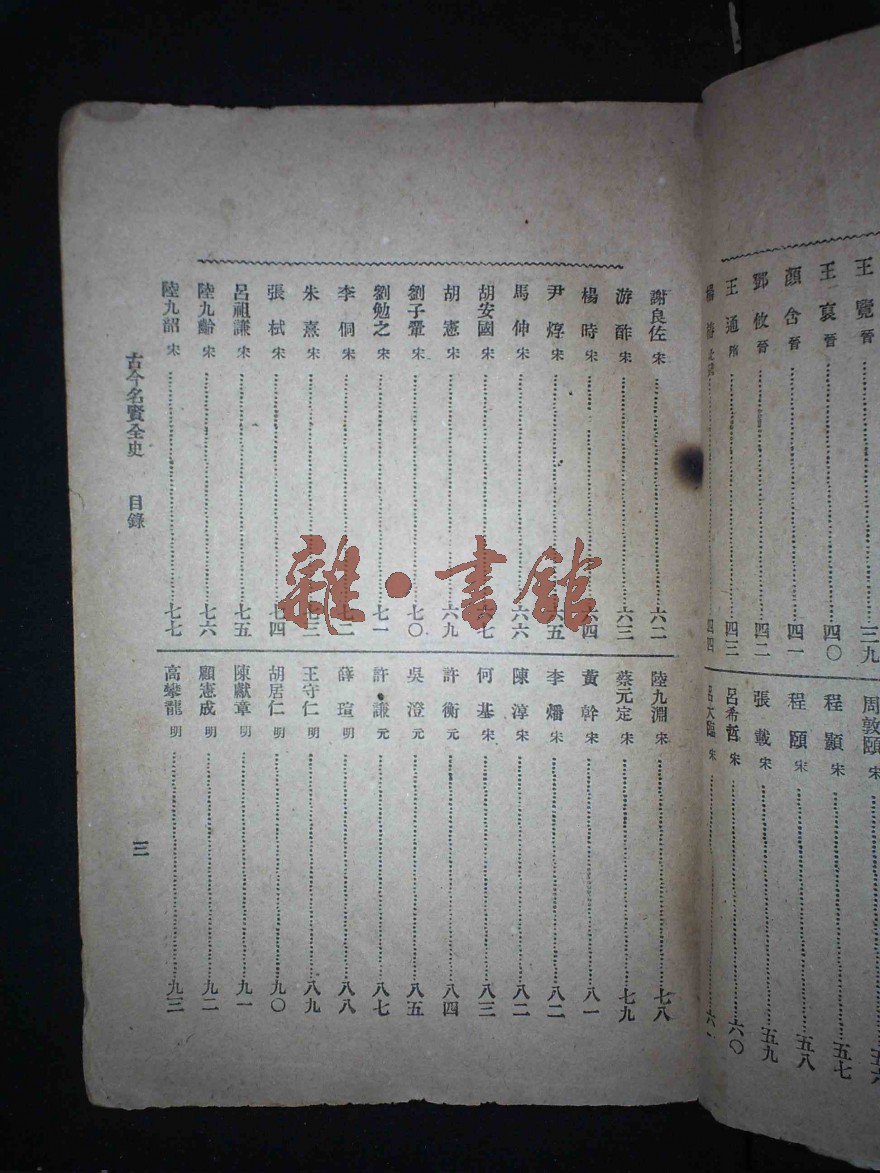 王覽 晉……三九
王裒 晉……四〇
顏含 晉……四一
鄧攸 晉……四二
王通 隋……四三
四四
周敦頤 宋……五六
程顥 宋……五七
程頤 宋……五八
張載 宋……五九
呂希哲 宋……六〇
呂大臨 宋……六一
謝良佐 宋……六二
游酢 宋……六三
楊時 宋……六四
尹焞 宋……六五
馬伸 宋……六六
胡安國 宋……六七
胡憲 宋……六九
劉子翬 宋……七〇
劉勉之 宋……七一
李侗 宋……七二
朱熹 宋……七三
張栻 宋……七四
呂祖謙 宋……七五
陸九齡 宋……七六
陸九韶 宋……七七
陸九淵 宋……七八
蔡元定 宋……七九
黃幹 宋……八一
李燔 宋……八二
陳淳 宋……八二
何基 宋……八三
許衡 元……八四
吳澄 元……八五
許謙 元……八七
薛瑄 明……八八
王守仁 明……八九
胡居仁 明……九〇
陳獻章 明……九一
顧憲成 明……九二
高攀龍 明……九三
古今名賢全史 目錄 三
雜·書館